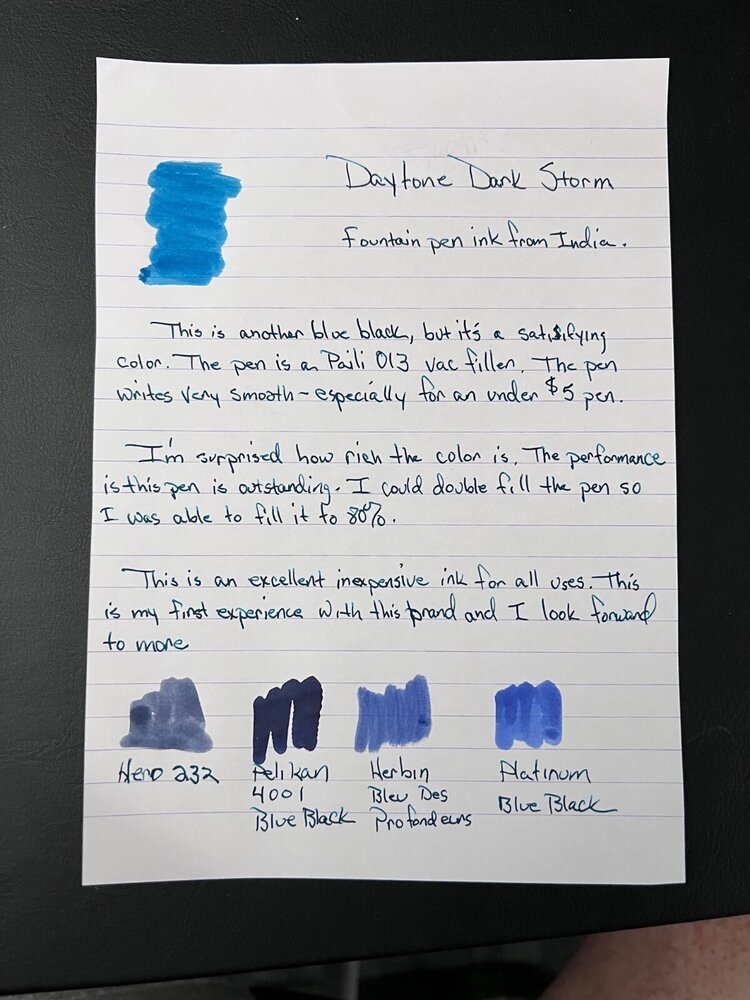 Daytone Dark Storm
Fountain pen ink from India.
This is another blue black, but it's a satisifying
color. The pen is a Paili 013 vac filler. The pen
writes very smooth - especially for an under $5 pen.
I'm surprised how rich the color is. The performance
is this pen is outstanding. I could double fill the pen so
I was able to fill it to 80%.
This is an excellent inexpensive ink for all uses. This
is my first experience with this brand and I look forward
to more
Hero 232
Pelikan
4001
Blue Black
Herbin
Bleu Des
Profondeurs
Platinum
Blue Black